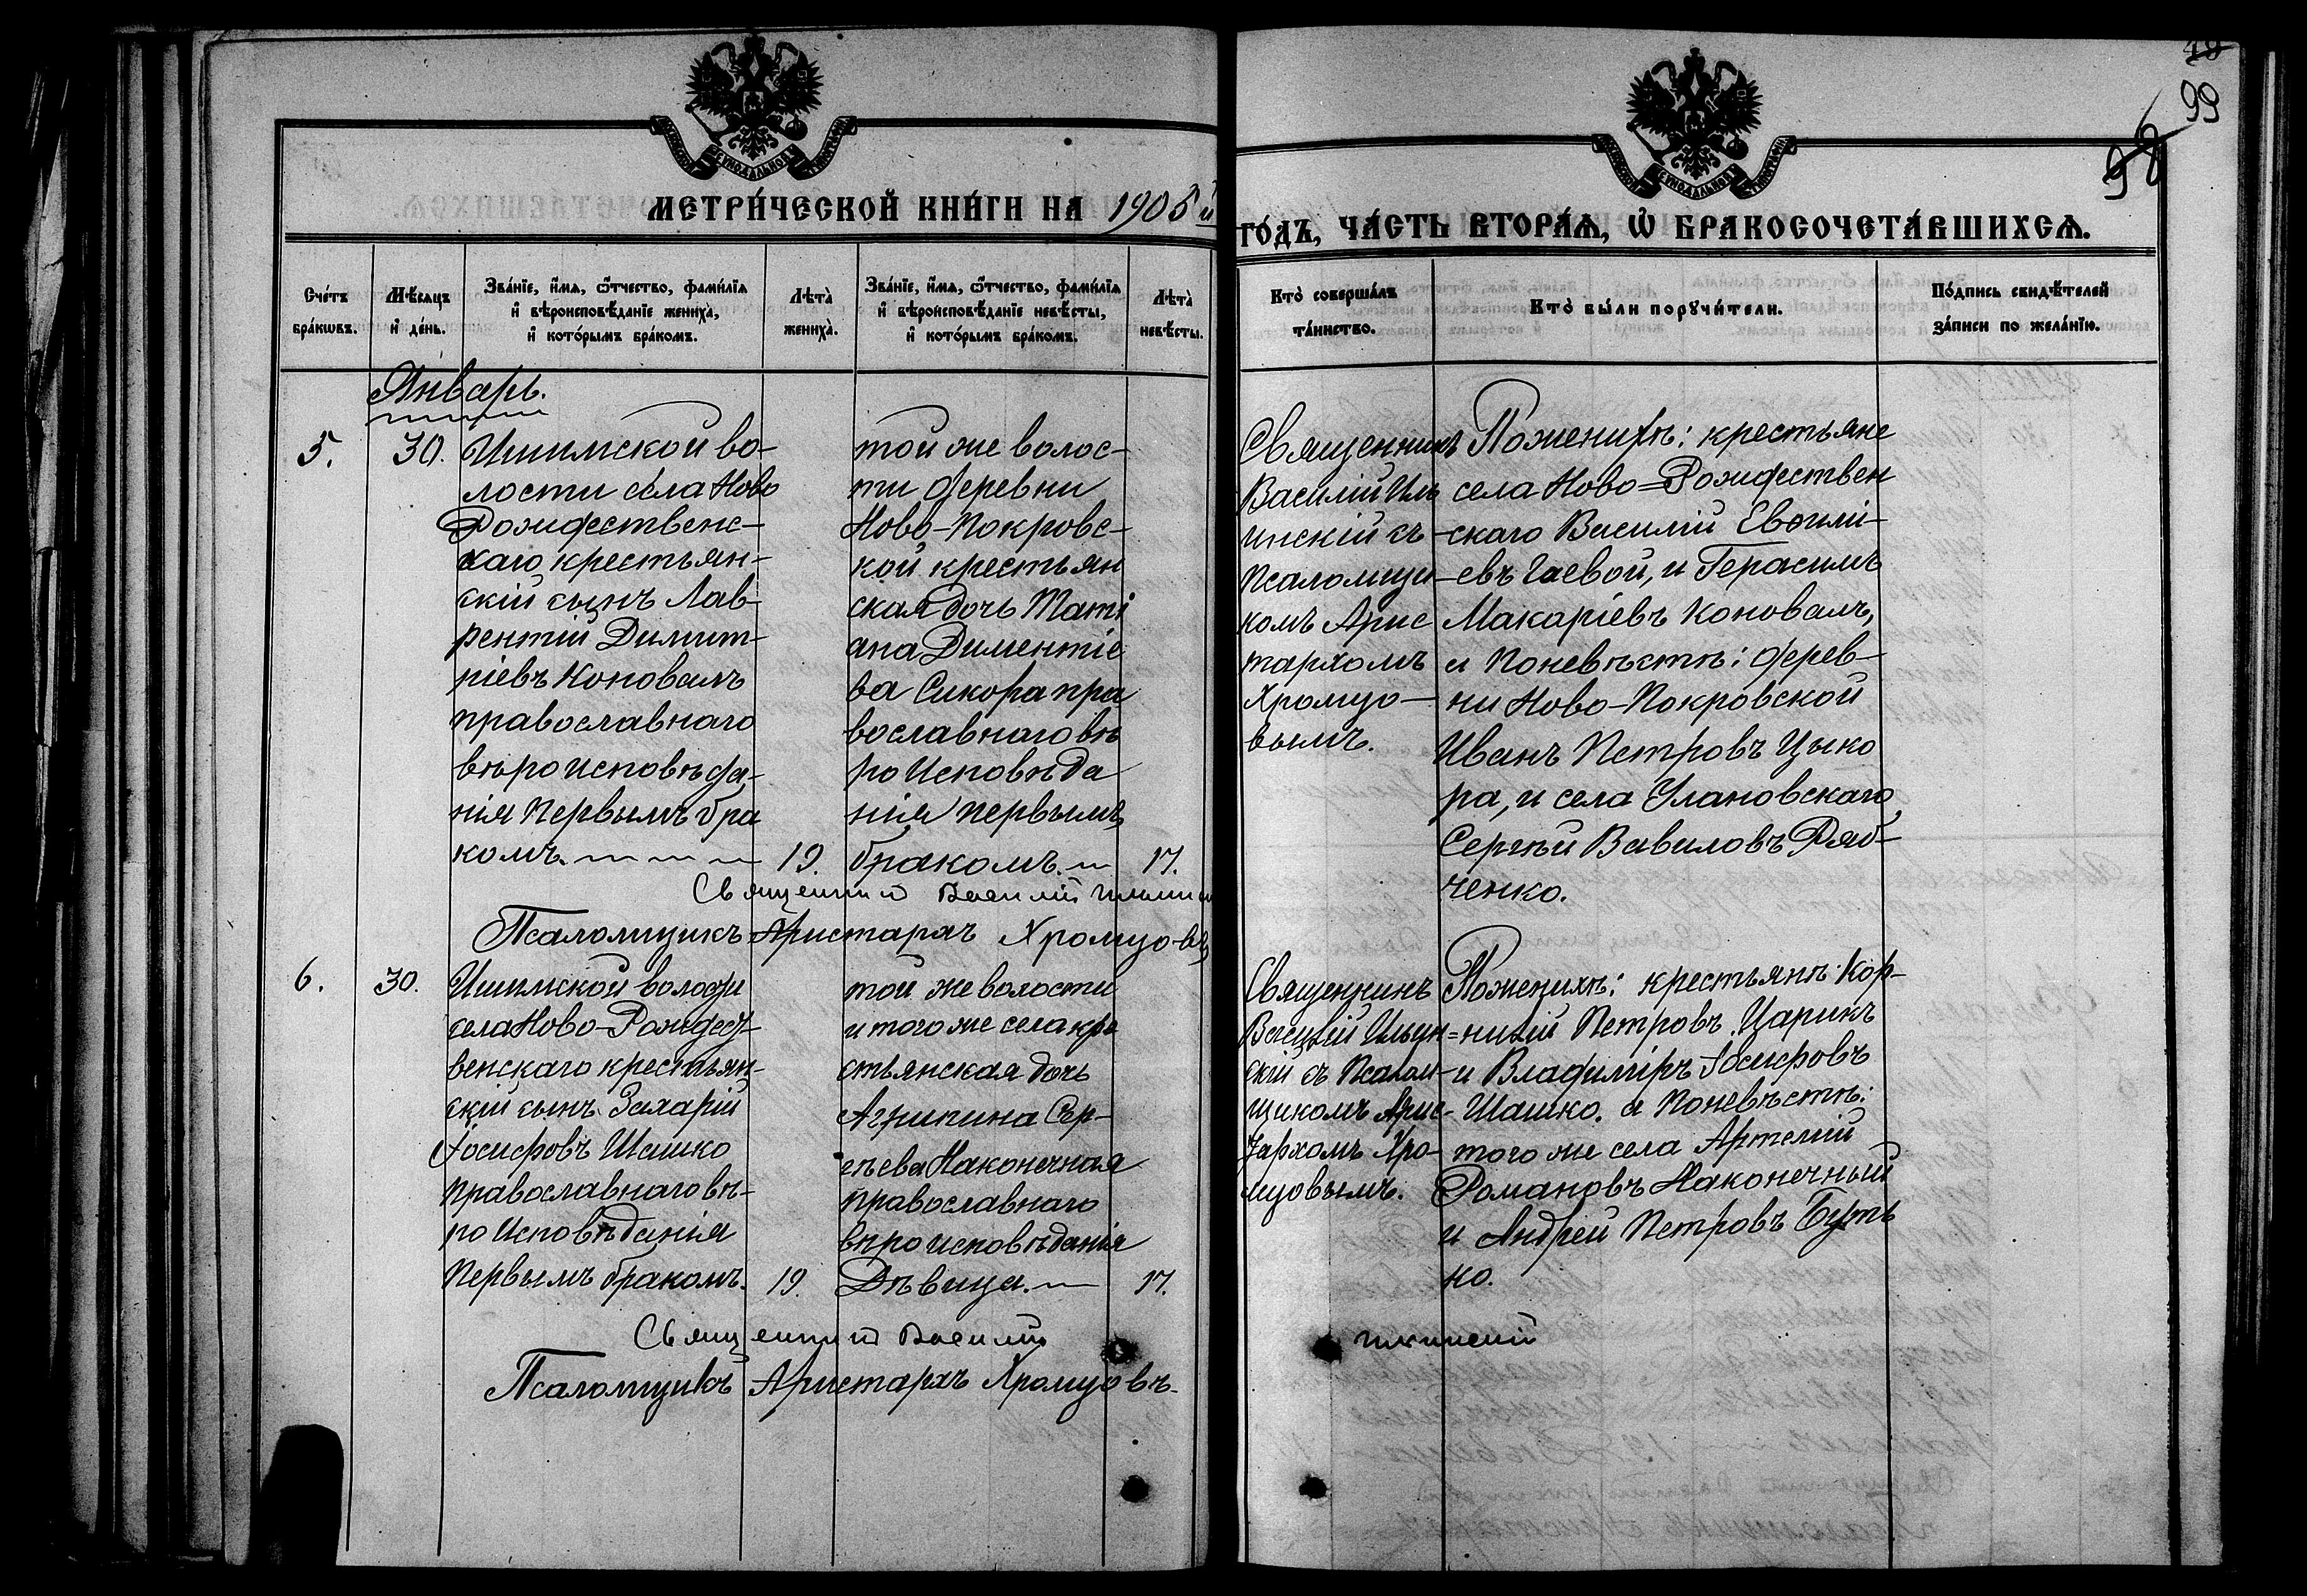 49
99
98
МЕТРИ́ЧЕСКОЙ КНИ́ГИ НА 1905й
ГО́ДЪ, ЧА́СТЬ ВТОРА́Ѧ, Ѡ҆ БРАКОСОЧЕТА́ВШИХСѦ.
Сче́тъ бра́кѡвъ.
Мѣ́сѧцъ и҆ де́нь.
Зва́нїе, и҆́мѧ, ѻ҆́тчество, фами́лїѧ и҆ вѣроисповѣ́данїе жениха̀, и҆ кото́рымъ бра́комъ.
Лѣта̀ жениха̀.
Зва́нїе, и҆́мѧ, ѻ҆́тчество, фами́лїѧ и҆ вѣроисповѣ́данїе невѣ́сты, и҆ кото́рымъ бра́комъ.
Лѣта̀ невѣ́сты.
Кто̀ соверша́лъ та́инство.
Кто̀ бы́ли порꙋчи́тели.
По́дпись свидѣ́телей за́писи по жела́нїю.
Январь.
5.
30.
Ишимской во-
лости села Ново
Рождественс-
каго крестьян-
скій сынъ Лав-
рентій Димит-
ріевъ Коновалъ
православнаго
вѣроисповѣда-
нія первымъ бра
комъ.
19.
той же волос-
ти деревни
Ново-Покровс-
кой крестьян
ская дочь Таті
ана Диментіе
ва Сикора пра
вославнаго вѣ
роисповѣда
нія первымъ
бракомъ.
17.
Священникъ
Василій Иль
инскій съ
Псаломщи-
комъ Арис
тархомъ
Хромцо-
вымъ.
Поженихѣ: крестьяне
села Ново=Рождествен
скаго Василій Евоилі-
евъ Гаевой, и Герасимъ
Макаріевъ Коновалъ,
а Поневѣстѣ: дерев-
ни Ново-Покровской
Иванъ Петровъ Цыко
ра, и села Улановскаго
Сергѣй Вавиловъ Ряб-
ченко.
Священник Василій Ильинскій
Псаломщикъ Аристархъ Хромцовъ
6.
30.
Ишимской волости
села Ново-Рождест-
венскаго крестьян-
скій сынъ Захарій
Іосифовъ Шашко
Православнаго вѣ-
роисповѣданія
Первымъ бракомъ.
19.
той же волости
и того же села кре
стьянская дочь
Агрипина Сер-
гѣева Наконечная
православнаго
вѣроисповѣданія
Дѣвица.
17.
Священникъ
Василій Ильин=
скій съ Псалом-
щикомъ Арис-
тархомъ Хро-
мцовымъ.
Поженихѣ: крестьянѣ Кор-
нилій Петровъ Царикъ
и Владиміръ Іосифовъ
Шашко. а Поневѣстѣ:
того же села Артемій
Романовъ Наконечный
и Андрей Петровъ Буть
ко.
Священник Василій Ильинскій
Псаломщикъ Аристархъ Хромцовъ.